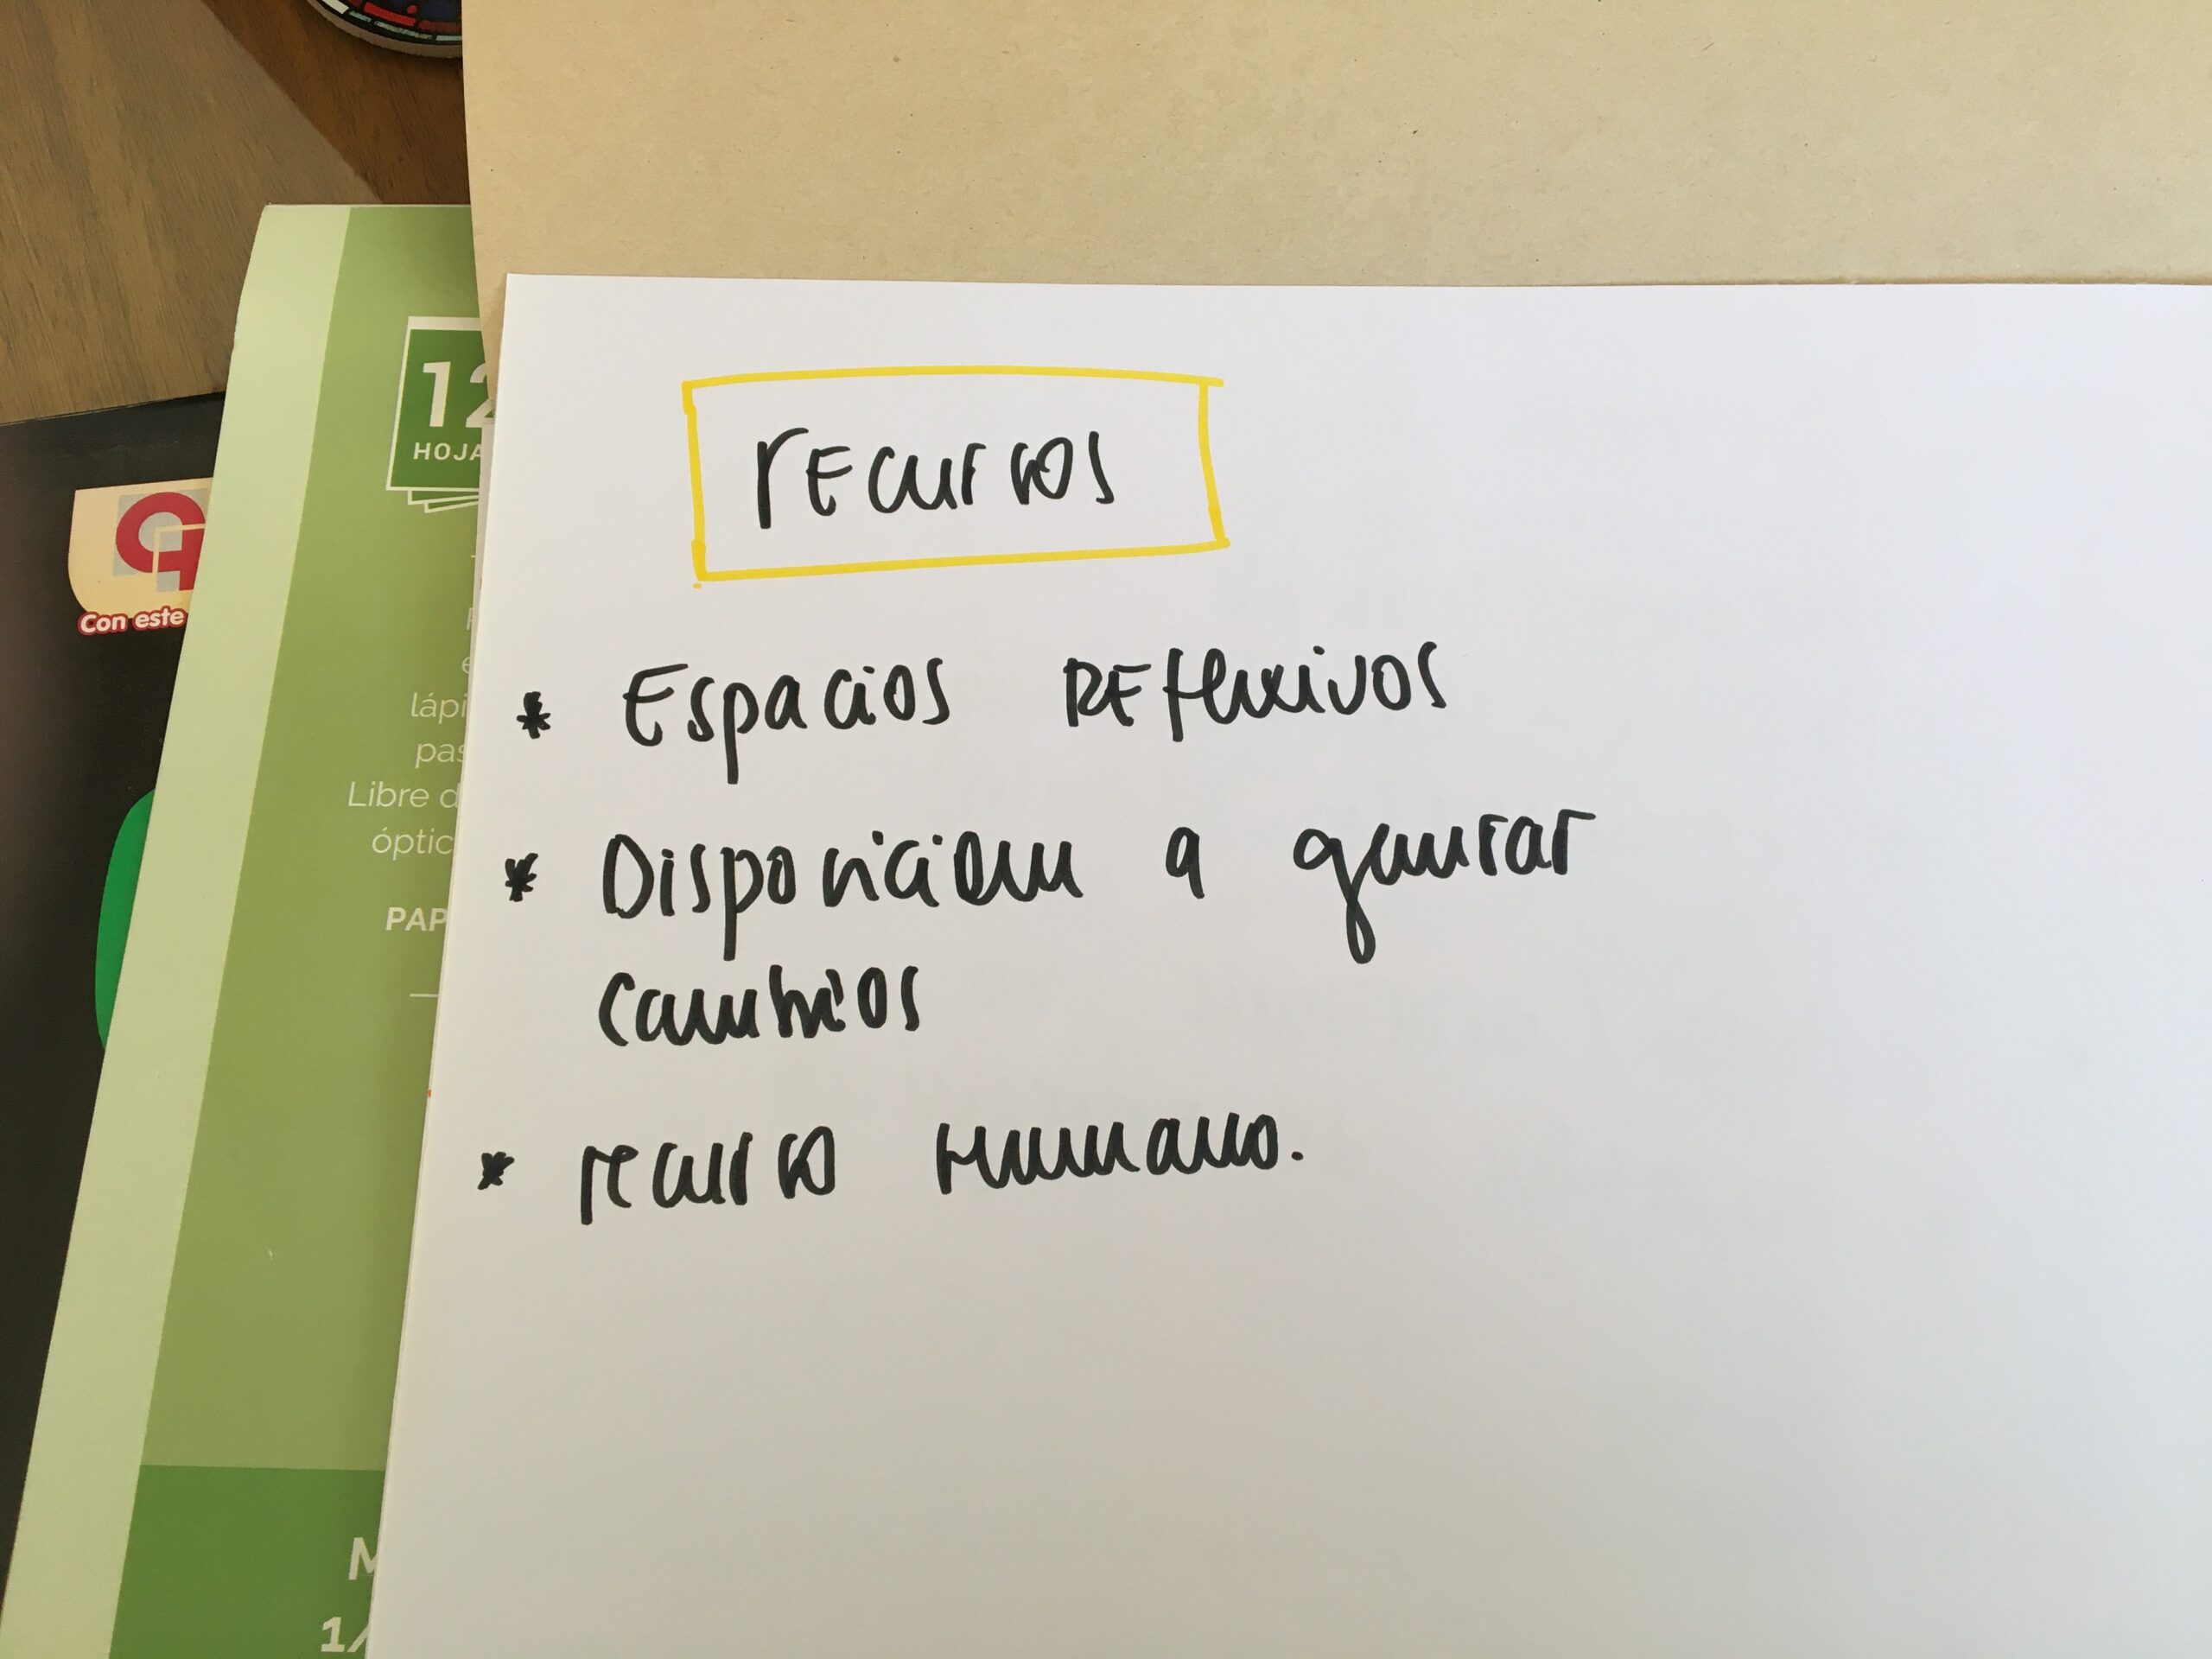 12
HOJA
Con este
lápi
pas
Libre d
óptic
PAP
M
1/
recursos
* Espacios Reflexivos
* Disposición a generar
cambios
* recurso Humano.